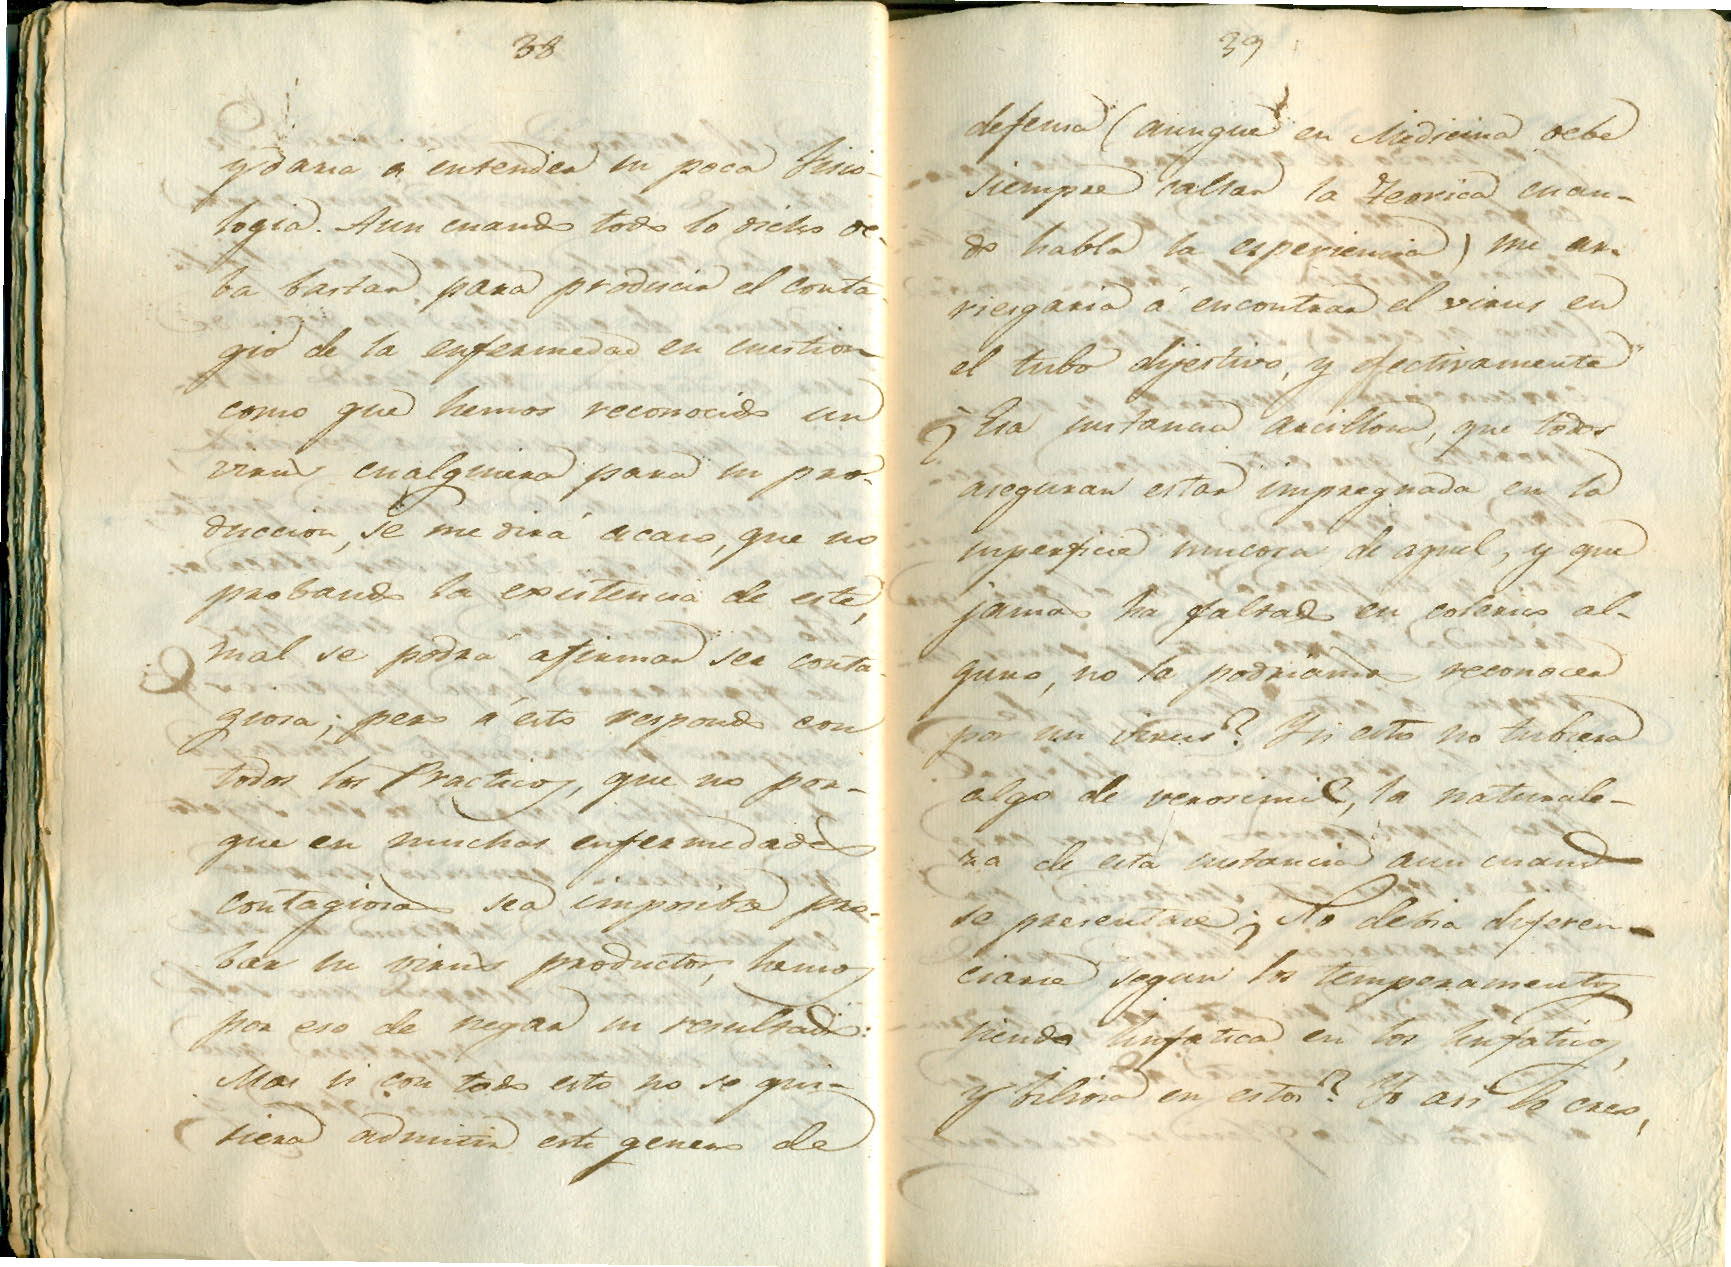 38
y daria á entender su poca fisio-
logia. Aun cuando todo lo dicho de-
ba bastar para producir el conta-
gio de la enfermedad en cuestion
como que hemos reconocido un
virus cualquiera para su pro-
duccion, se me dirá acaso, que no
probando la existencia de este,
mal se podrá afirmar ser conta-
giosa; pero á esto respondo con
todos los Practicos, que no por-
que en muchas enfermedades
contagiosas sea imposible pro-
bar su virus productor, hemos
por eso de negar su resultado:
Mas si con todo esto no se qui-
siera admitir este genero de
39
defensa (aunque en Medicina debe
siempre callar la Teorica cuan-
do habla la esperiencia) me ar-
riesgaria á encontrar el virus en
el tubo dijestivo, y efectivamente
¿Esa sustancia arcillosa, que todos
aseguran estar impregnada en la
superficie mucosa de aquel, y que
jamas ha faltado en colerico al-
guno, no la podriamos reconocer
por un virus? Y si esto no tubiera
algo de verosimil, la naturale-
za de esta sustancia aun cuando
se presentare ¿No debia diferen-
ciarse segun los temperamentos
siendo linfatica en los linfaticos,
y biliosa en estos? Yo asi lo creo,